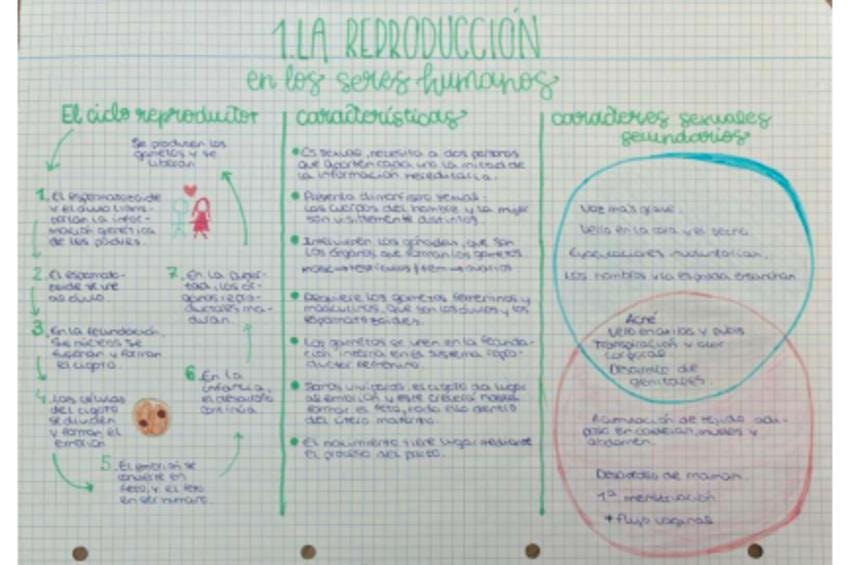 1. LA REPRODUCCIÓN
en los seres humanos
El ciclo reproductor
Se producen los
gametos y se
liberan
1. El espermatozoide
y el óvulo trans-
portan la infor-
mación genética
de los padres.
2. El espermato-
zoide se une
al óvulo.
3. En la fecundación,
sus núcleos se
fusionan y forman
el cigoto.
4. Las células
del cigoto
se dividen
y forman el
embrión
5. El embrión se
convierte en
feto, y el feto
en ser humano.
6. En la
infancia,
el desarrollo
continúa.
7. En la puber-
tad, los ór-
ganos repro-
ductores ma-
duran.
características
Es sexual, necesita a dos personas
que aporten cada una la mitad de
la información hereditaria.
Presenta dimorfismo sexual:
los cuerpos del hombre y la mujer
son visiblemente distintos.
Intervienen las gónadas, que son
los órganos que forman los gametos.
masc→testículos / fem→ovarios
Requiere los gametos femeninos y
masculinos, que son los óvulos y los
espermatozoides.
Los gametos se unen en la fecunda-
ción interna en el sistema repro-
ductor femenino.
Somos vivíparos, el cigoto da lugar
al embrión y este crecerá hasta
formar el feto, todo eso dentro
del útero materno.
El nacimiento tiene lugar mediante
el proceso del parto.
caracteres sexuales
secundarios
Voz más grave.
Vello en la cara y el pecho.
Eyaculaciones involuntarias.
Los hombros y la espalda ensanchan.
Acné
Vello en axilas y pubis
Transpiración y olor
corporal
Desarrollo de
genitales.
Acumulación de tejido adi-
poso en caderas, muslos y
abdomen.
Desarrollo de mamas.
1ª menstruación
+ flujo vaginal